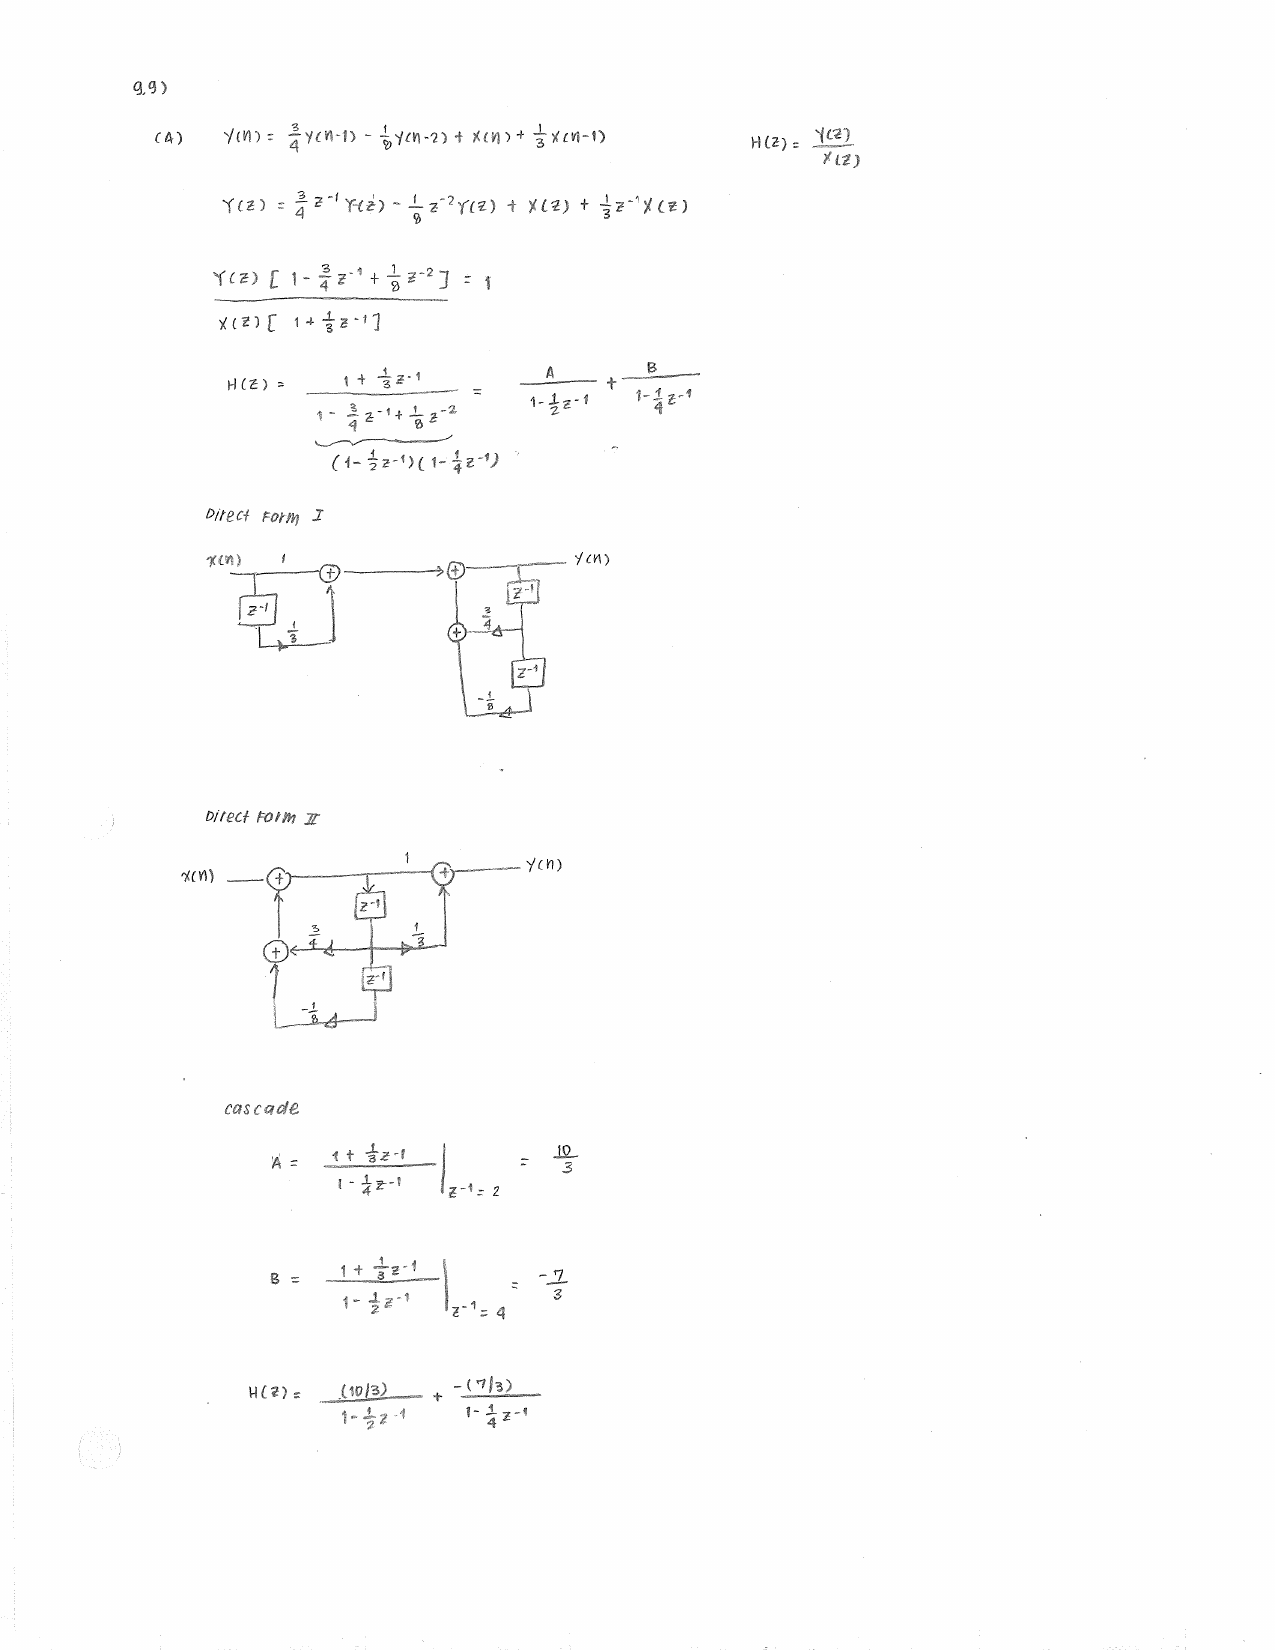 9.9)
(A) y(n) = 3/4 y(n-1) - 1/8 y(n-2) + x(n) + 1/3 x(n-1) H(z) = Y(z)/X(z)
Y(z) = 3/4 z^-1 Y(z) - 1/8 z^-2 Y(z) + X(z) + 1/3 z^-1 X(z)
Y(z) [ 1 - 3/4 z^-1 + 1/8 z^-2 ] = 1
X(z) [ 1 + 1/3 z^-1 ]
H(z) = (1 + 1/3 z^-1)/(1 - 3/4 z^-1 + 1/8 z^-2) = A/(1 - 1/2 z^-1) + B/(1 - 1/4 z^-1)
(1 - 1/2 z^-1)(1 - 1/4 z^-1)
Direct Form I
x(n) 1 + + y(n)
z^-1
z^-1 1/3
+ 3/4
z^-1
-1/8
Direct Form II
x(n) + 1 + y(n)
z^-1
+ 3/4 1/3
z^-1
-1/8
cascade
A = (1 + 1/3 z^-1)/(1 - 1/4 z^-1) | z^-1 = 2 = 10/3
B = (1 + 1/3 z^-1)/(1 - 1/2 z^-1) | z^-1 = 4 = -7/3
H(z) = (10/3)/(1 - 1/2 z^-1) + -(7/3)/(1 - 1/4 z^-1)